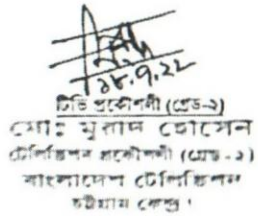 ১৮.৭.২২
টিভি প্রকৌশলী (গ্রেড-২)
মোঃ মুরাদ হোসেন
টেলিভিশন প্রকৌশলী (গ্রেড - ২)
বাংলাদেশ টেলিভিশন
চট্টগ্রাম কেন্দ্র।